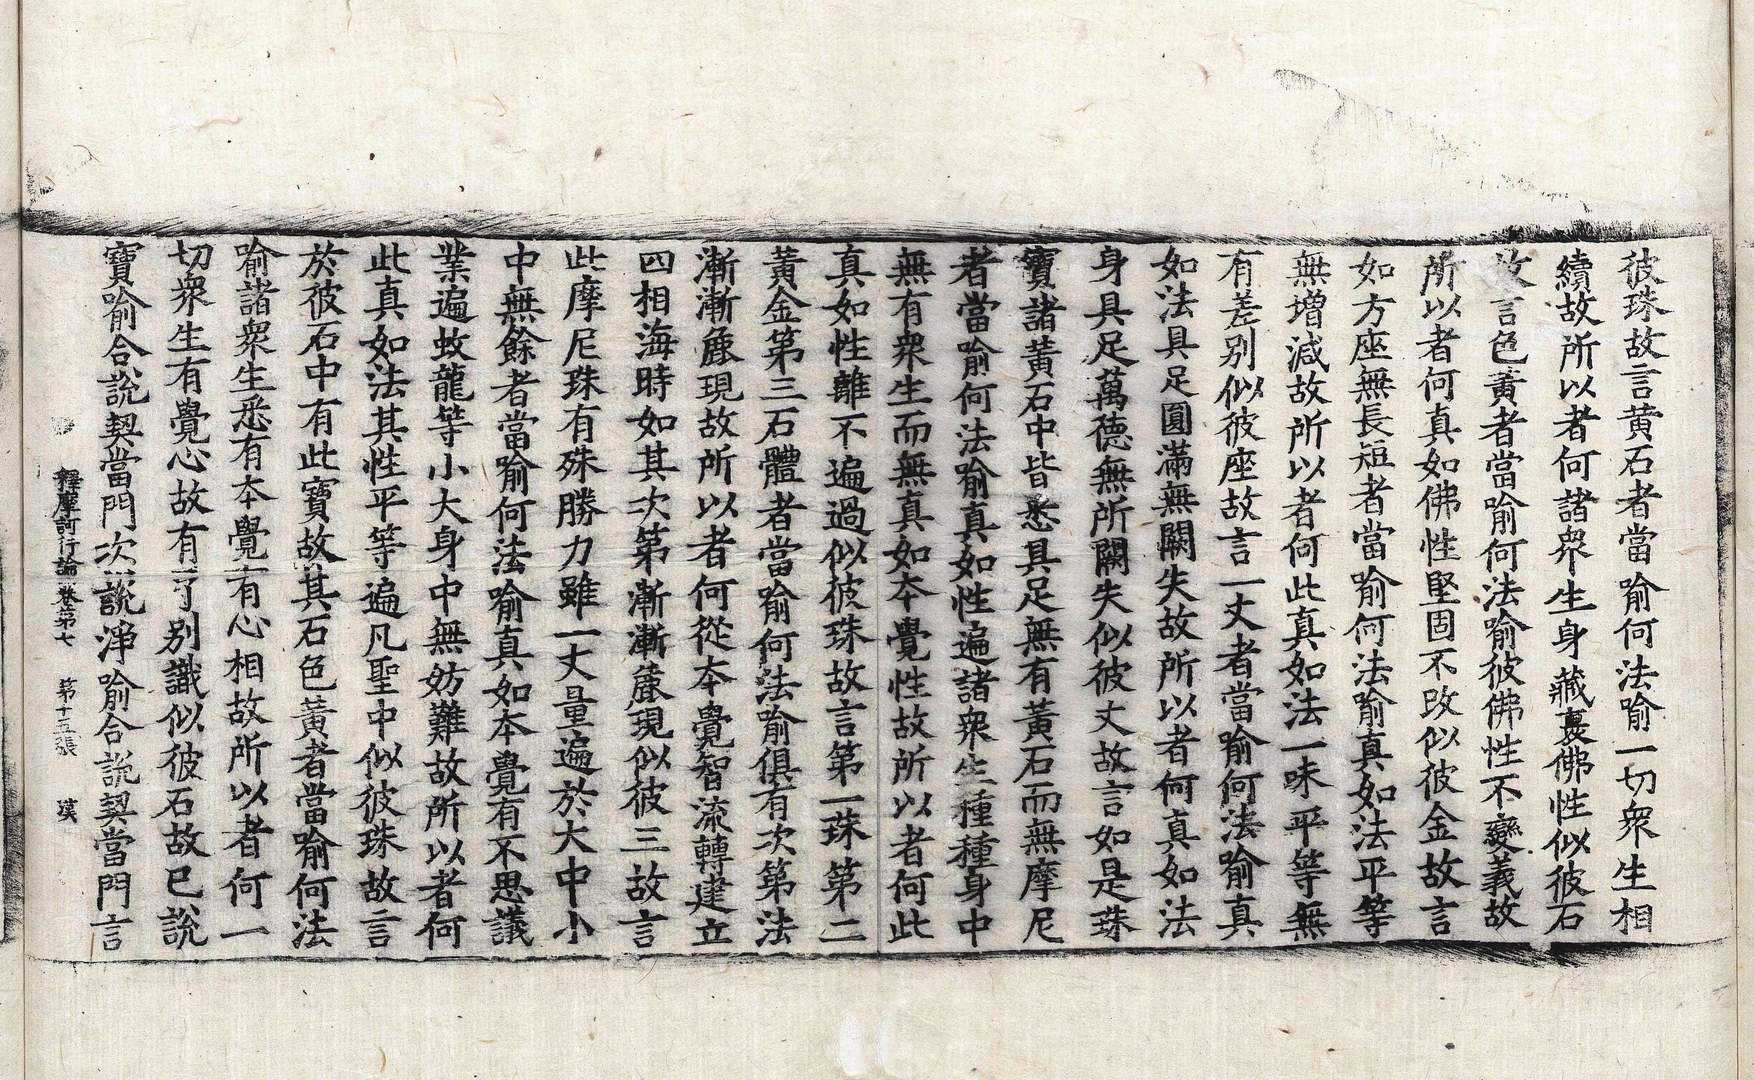 彼珠故言黄石者當喻何法喻一切衆生相
續故所以者何諸衆生身藏裹佛性似彼石
故言色黄者當喻何法喻彼佛性不變義故
所以者何真如佛性堅固不改似彼金故言
如方座無長短者當喻何法喻真如法平等
無增減故所以者何此真如法一味平等無
有差别似彼座故言一丈者當喻何法喻真
如法具足圓滿無闕失故所以者何真如法
身具足萬德無所闕失似彼丈故言如是珠
寶諸黄石中皆悉具足無有黄石而無摩尼
者當喻何法喻真如性遍諸衆生種種身中
無有衆生而無真如本覺性故所以者何此
真如性離不遍過似彼珠故言第一珠第二
黄金第三石體者當喻何法喻俱有次第法
漸漸麁現故所以者何從本覺智流轉建立
四相海時如其次第漸漸麁現似彼三故言
此摩尼珠有殊勝力雖一丈量遍於大中小
中無餘者當喻何法喻真如本覺有不思議
業遍蚊龍等小大身中無妨難故所以者何
此真如法其性平等遍凡聖中似彼珠故言
於彼石中有此寶故其石色黄者當喻何法
喻諸衆生悉有本覺有心相故所以者何一
切衆生有覺心故有了别識似彼石故已說
寶喻合說契當門次說淨喻合說契當門言
釋摩訶衍論卷第七 第十五張 漢